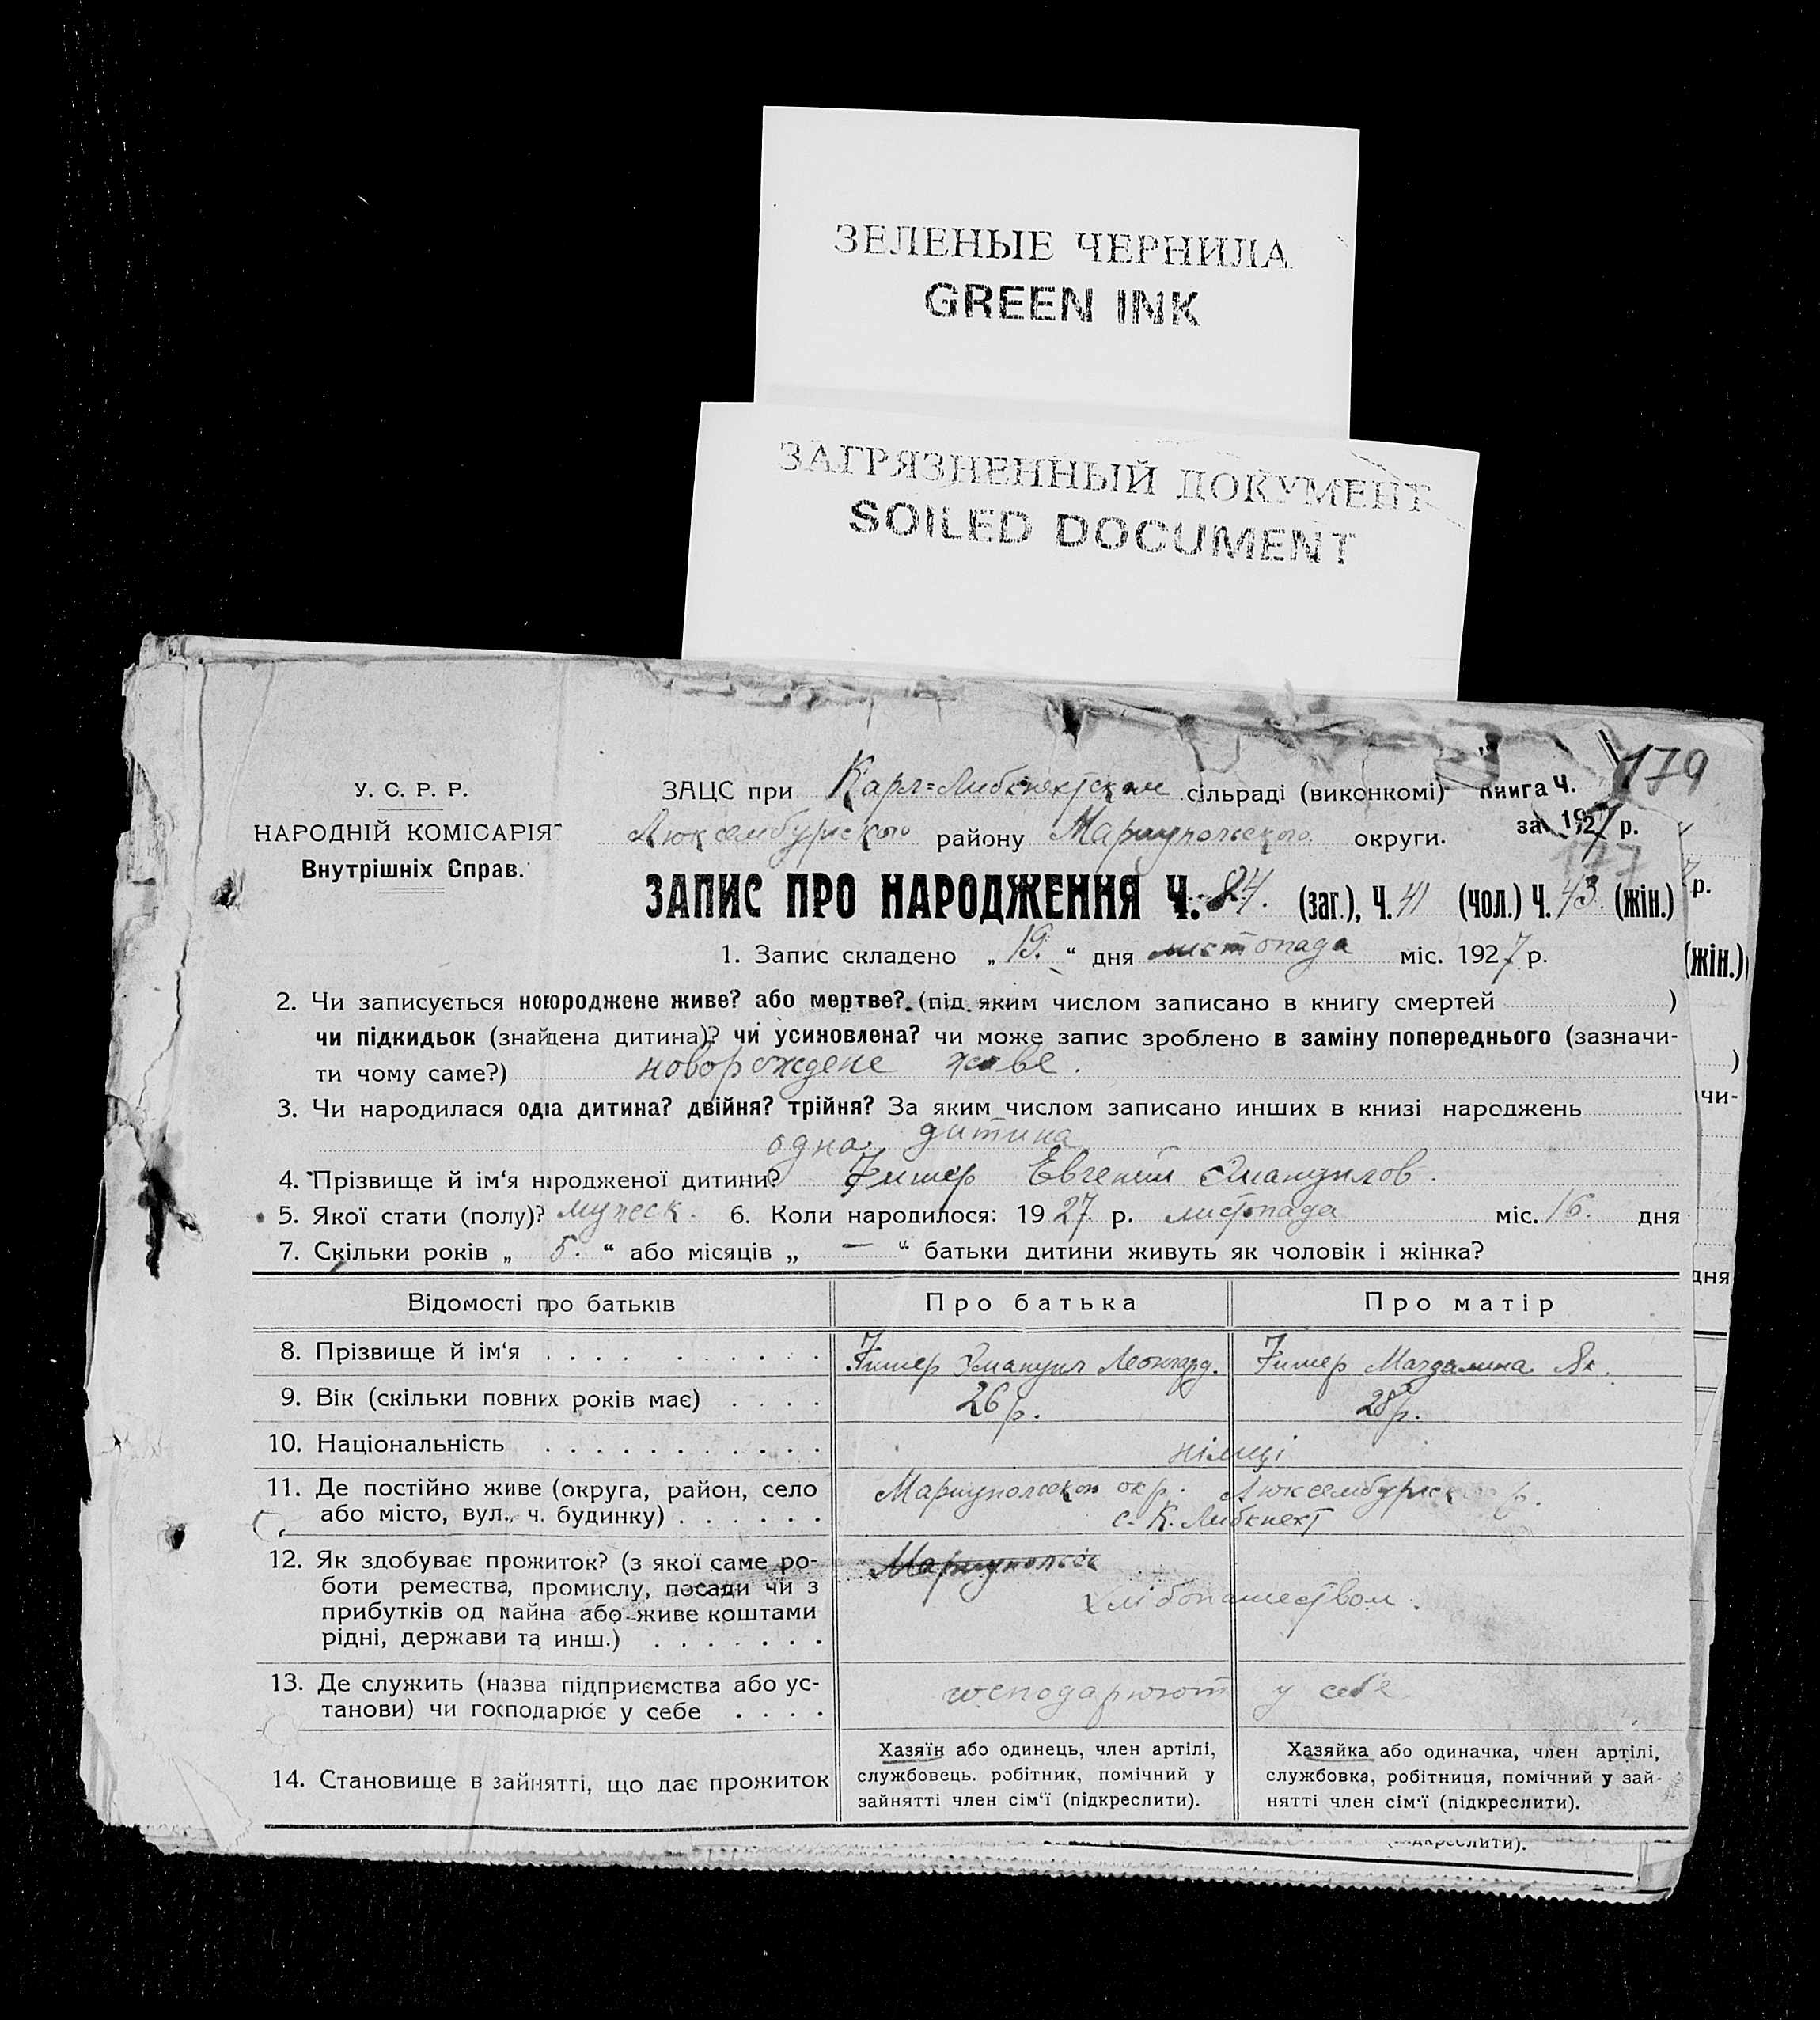 ЗЕЛЕНЫЕ ЧЕРНИЛА
GREEN INK
ЗАГРЯЗНЕННЫЙ ДОКУМЕНТ
SOILED DOCUMENT
179
У. С. Р. Р.
НАРОДНІЙ КОМІСАРІЯТ
Внутрішніх Справ.
ЗАЦС при Карл=Либкнехтском сільраді (виконкомі) Книга Ч.
Люксембургского району Мариупольского округи. за 1927 р.
177
ЗАПИС ПРО НАРОДЖЕННЯ Ч. 84. (заг.), Ч. 41 (чол.) Ч. 43. (жін.)
1. Запис складено „ 19. “ дня листопада міс. 1927 р.
2. Чи записується новороджене живе? або мертве? (під яким числом записано в книгу смертей )
чи підкидьок (знайдена дитина)? чи усиновлена? чи може запис зроблено в заміну попереднього (зазначи-
ти чому саме?) новорождене живе.
3. Чи народилася одна дитина? двійня? трійня? За яким числом записано инших в книзі народжень
одна дитина
4. Прізвище й ім‘я народженої дитини? Евгений Эмануилов.
5. Якої стати (полу)? мужеск. 6. Коли народилося: 1927 р. листопада міс. 16. дня
7. Скільки років „ 5. “ або місяців „ — “ батьки дитини живуть як чоловік і жінка?
Відомості про батьків Про батька Про матір
8. Прізвище й ім‘я Эмануил Леонгард. Магдалина Як.
9. Вік (скільки повних років має) 26 р. 28 р.
10. Національність німці
11. Де постійно живе (округа, район, село Мариупольской окр. Люксембургск р.
або місто, вул., ч. будинку) с. К. Либкнехт
12. Як здобуває прожиток? (з якої саме ро- Мариупольск
боти ремества, промислу, посади чи з хлібопашеством.
прибутків од майна або живе коштами
рідні, держави та инш.)
13. Де служить (назва підприємства або ус- господарюют у себе
танови) чи господарює у себе
14. Становище в зайнятті, що дає прожиток
Хазяїн або одинець, член артілі,
службовець. робітник, помічний у
зайнятті член сім‘ї (підкреслити).
Хазяйка або одиначка, член артілі,
службовка, робітниця, помічний у зай-
нятті член сім‘ї (підкреслити).
р.
(жін.)
)
чи-
дня